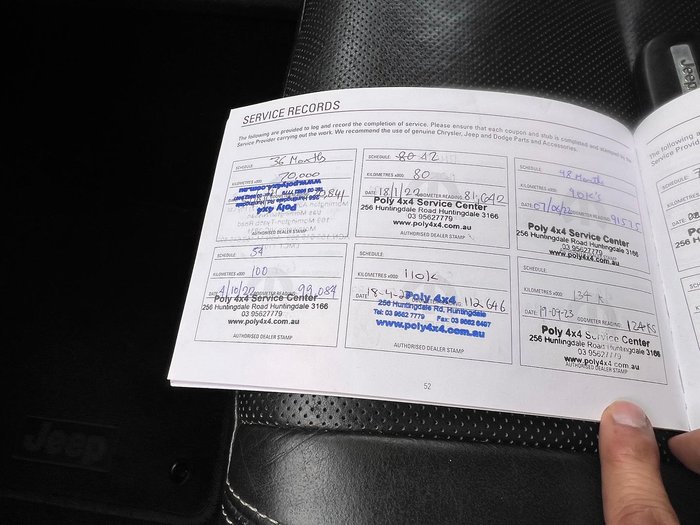 SERVICE RECORDS
The following are provided to log and record the completion of service. Please ensure that each coupon and stub is completed and stamped by the
Service Provider carrying out the work. We recommend the use of genuine Chrysler, Jeep and Dodge Parts and Accessories.
SCHEDULE: 36 Months
KILOMETRES x000 70,000
www.poly4x4.com.au
Poly 4x4
AUTHORISED DEALER STAMP
SCHEDULE:
KILOMETRES x000 80
DATE: 18/1/22 ODOMETER READING: 81,642
Poly 4x4 Service Center
256 Huntingdale Road Huntingdale 3166
03 95627779
www.poly4x4.com.au
AUTHORISED DEALER STAMP
SCHEDULE: 48 Months
KILOMETRES x000
DATE: 07/06/22 ODOMETER READING: 91575
Poly 4x4 Service Center
256 Huntingdale Road Huntingdale 3166
03 95627779
www.poly4x4.com.au
SCHEDULE:
KILOMETRES x000 100
DATE: 4/10/22 ODOMETER READING: 99,084
Poly 4x4 Service Center
256 Huntingdale Road Huntingdale 3166
03 95627779
www.poly4x4.com.au
AUTHORISED DEALER STAMP
SCHEDULE:
KILOMETRES x000 110k
DATE: 18-4-23 112646
Poly 4x4
256 Huntingdale Rd, Huntingdale
Tel: 03 9562 7779 Fax: 03 9562 6487
www.poly4x4.com.au
AUTHORISED DEALER STAMP
SCHEDULE:
KILOMETRES x000
DATE: 19-09-23 ODOMETER READING:
Poly 4x4 Service Center
256 Huntingdale Road Huntingdale 3166
03 95627779
www.poly4x4.com.au
AUTHORISED DEALER STAMP
52
The following
Service
SCHEDULE:
Jeep
Jeep